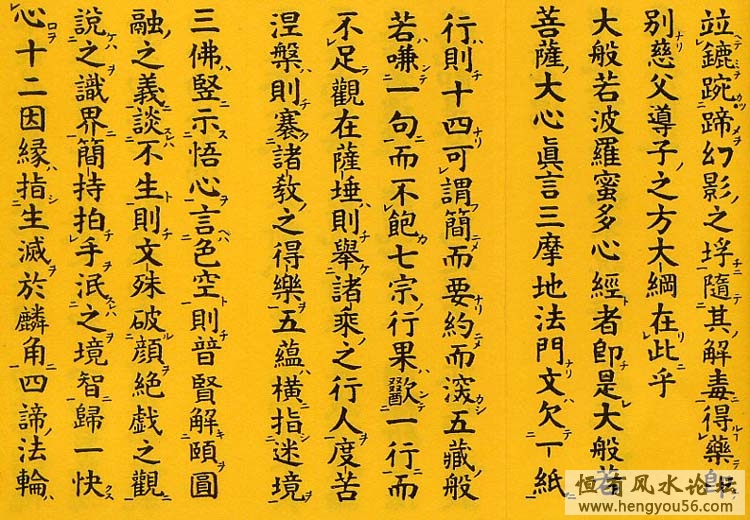 竝鑣踠蹄幻影之埒隨其解毒得藥即
別慈父導子之方大綱在此乎
大般若波羅蜜多心經者即是大般若
菩薩大心眞言三摩地法門文欠一紙
行則十四可謂簡而要約而深五藏般
若嗛一句而不飽七宗行果歠一行而
不足觀在薩埵則舉諸乘之行人度苦
涅槃則褰諸教之得樂五蘊橫指迷境
三佛竪示悟心言色空則普賢解頤圓
融之義談不生則文殊破顔絶戲之觀
說之識界簡持拍手泯之境智歸一快
心十二因緣指生滅於麟角四諦法輪
恒有风水论坛
www.hengyou56.com